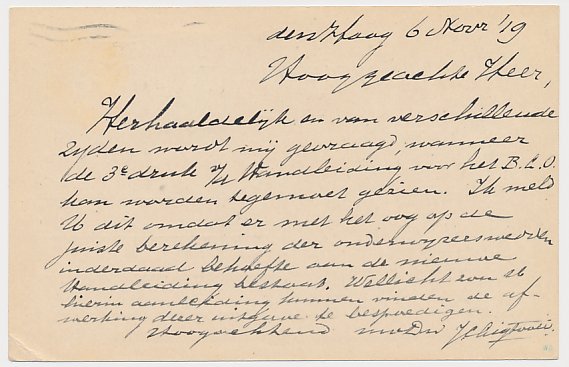 den Haag 6 Novr '19
Hooggeachte Heer,
Herhaaldelijk en van verschillende
zijden wordt mij gevraagd, wanneer
de 3e druk Handleiding voor het B.L.O.
kan worden tegemoet gezien. Ik meld
U dit omdat er met het oog op de
juiste berekening der
inderdaad behoefte aan de nieuwe
Handleiding bestaat. Wellicht zou U
hierin aanleiding kunnen vinden de af-
werking dezer uitgave te bespoedigen.
Hoogachtend